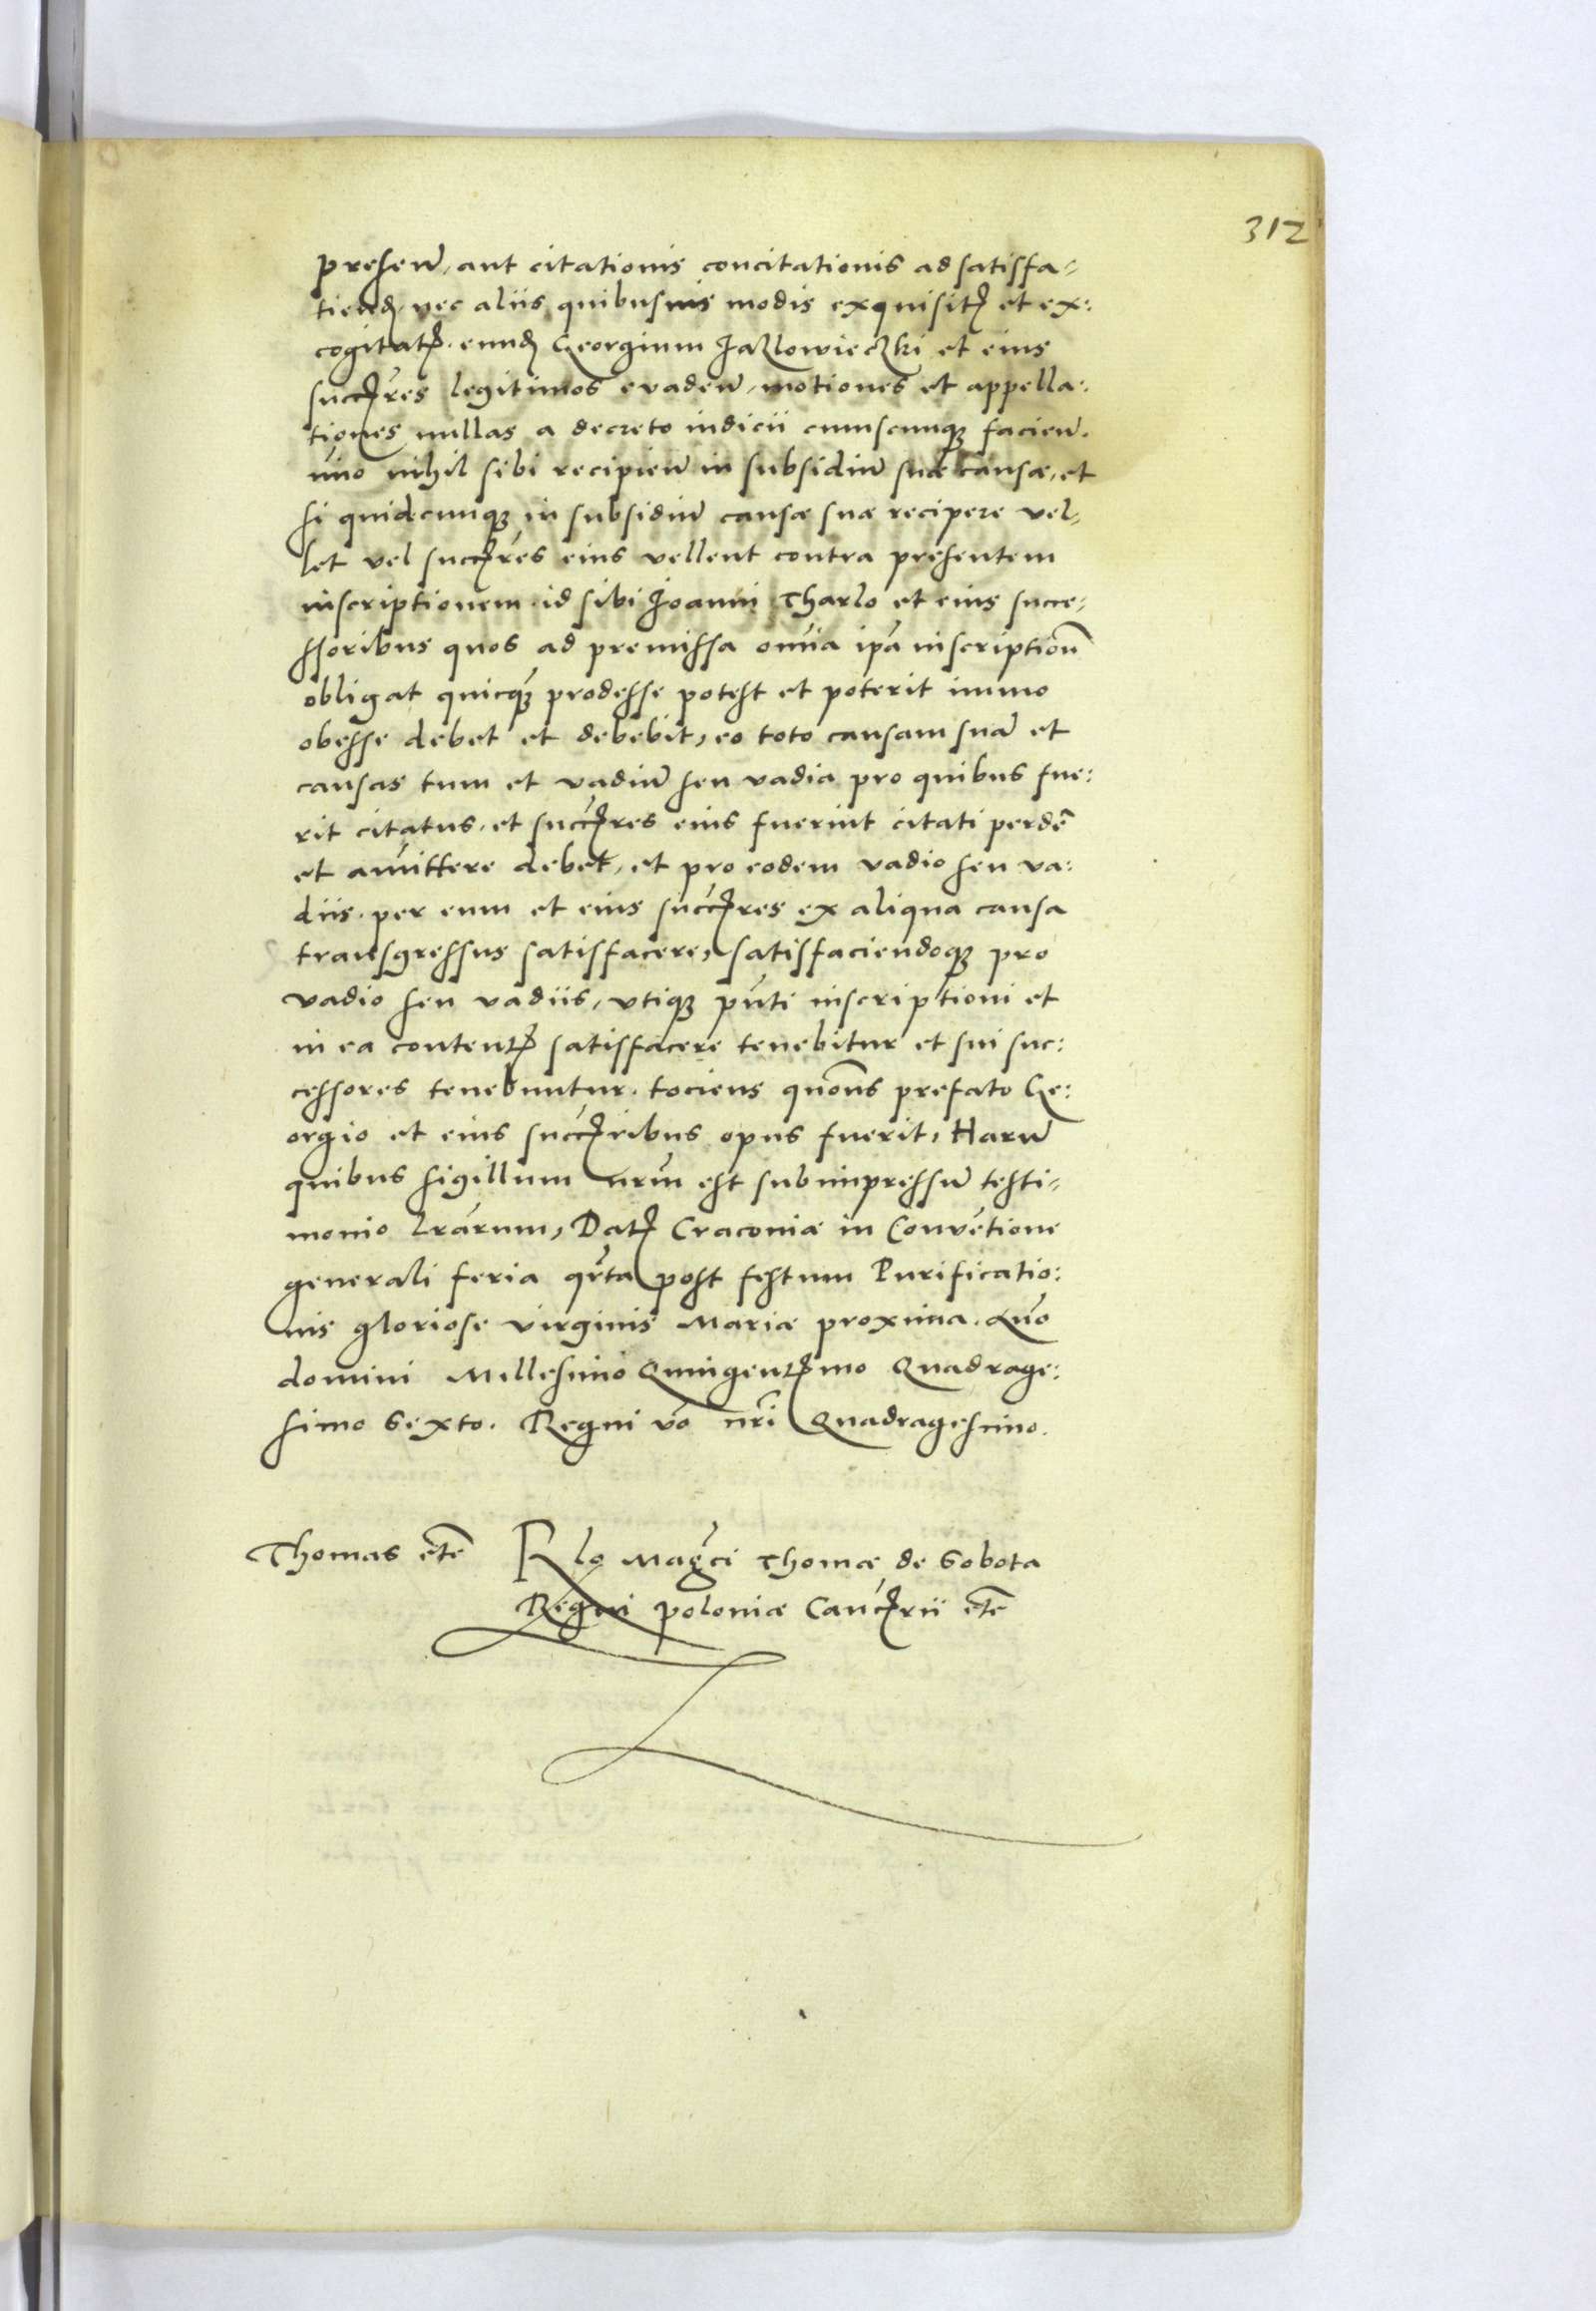 312
presen̄, aut citationis concitationis ad satisfa-
tiend, nec aliis quibusuis modis exquisit et ex:
cogitat. eund Georgium Jazlowieczki et eius
succres legitimos evaden̄, motiones et appella:
tiones nullas a decreto iudicii cuiuscunq facien̄.
imo nihil sibi recipien̄ in subsidiū suæ causæ, et
si quidcunq in subsidiū causæ suæ recipere vel-
let vel succres eius vellent contra presentem
inscriptionem id sibi Joanni Tharlo et eius succe-
ssoribus quos ad premissa om̄ia ip̄a inscription̄
obligat quicq prodesse potest et poterit immo
obesse debet et debebit, eo toto causam suā et
causas tum et vadiū seu vadia pro quibus fue:
rit citatus, et succres eius fuerint citati perdē
et amittere debet, et pro eodem vadio seu va:
diis. per eum et eius succres ex aliqua causa
transgressus satisfacere, satisfaciendoq pro
vadio seu vadiis, vtiq pn̄ti inscriptioni et
in ea content satisfacere tenebitur et sui suc:
cessores tenebuntur. tociens quōns prefato Ge:
orgio et eius succribus opus fuerit, Harū
quibus sigillum nr̄m est subimpressū testi-
monio lrārum, Dat Cracoviæ in Convētione
generali feria qrta post festum Purificatio:
nis gloriose virginis Mariæ proxima. Año
domini Millesimo Quingentmo Quadrage:
simo Sexto. Regni vō nr̄i Quadragesimo.
Thomas etc̄ Rlo Mag̃ci Thomæ de Sobota
Regni poloniæ Cancrii etc̄